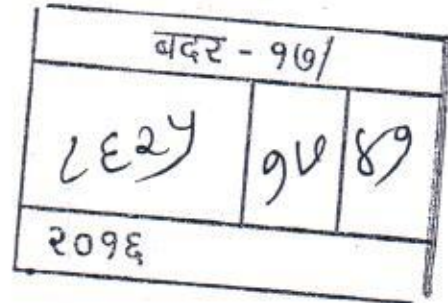 बदर - १७/
८६२५ १४ ४१
२०१६